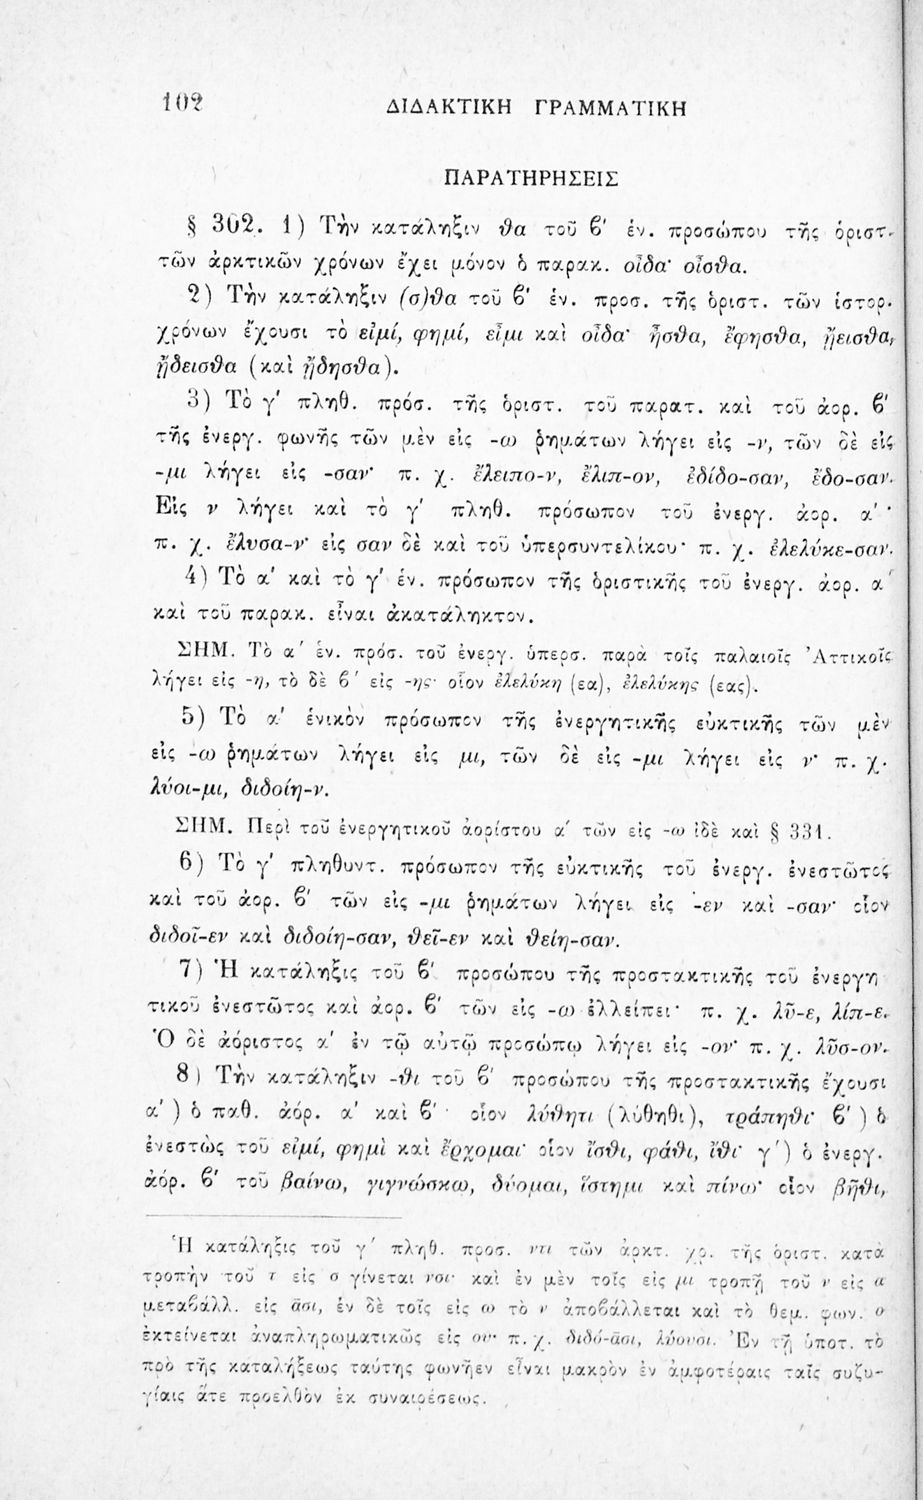 102
ΔΙΔΑΚΤΙΚΗ ΓΡΑΜΜΑΤΙΚΗ
ΠΑΡΑΤΗΡΗΣΕΙΣ
§ 302. 1) Τὴν κατάληξιν θα τοῦ β' ἑν. προσώπου τῆς ὁριστ.
τῶν ἀρκτικῶν χρόνων ἔχει μόνον ὁ παρακ. οἶδα· οἶσθα.
2) Τὴν κατάληξιν (σ)θα τοῦ β' ἑν. προσ. τῆς ὁριστ. τῶν ἱστορ.
χρόνων ἔχουσι τὸ εἰμί, φημί, εἶμι καὶ οἶδα· ἦσθα, ἔφησθα, ᾔεισθα,
ᾔδεισθα (καὶ ᾔδησθα).
3) Τὸ γ' πληθ. πρόσ. τῆς ὁριστ. τοῦ παρατ. καὶ τοῦ ἀορ. β'
τῆς ἐνεργ. φωνῆς τῶν μὲν εἰς -ω ῥημάτων λήγει εἰς -ν, τῶν δὲ εἰς
-μι λήγει εἰς -σαν· π. χ. ἔλειπο-ν, ἔλιπ-ον, ἐδίδο-σαν, ἔδο-σαν.
Εἰς ν λήγει καὶ τὸ γ' πληθ. πρόσωπον τοῦ ἐνεργ. ἀορ. α'·
π. χ. ἔλυσα-ν· εἰς σαν δὲ καὶ τοῦ ὑπερσυντελίκου· π. χ. ἐλελύκε-σαν.
4) Τὸ α' καὶ τὸ γ' ἑν. πρόσωπον τῆς ὁριστικῆς τοῦ ἐνεργ. ἀορ. α'
καὶ τοῦ παρακ. εἶναι ἀκατάληκτον.
ΣΗΜ. Τὸ α' ἑν. πρόσ. τοῦ ἐνεργ. ὑπερσ. παρὰ τοῖς παλαιοῖς Ἀττικοῖς
λήγει εἰς -η, τὸ δὲ β' εἰς -ης· οἷον ἐλελύκη (εα), ἐλελύκης (εας).
5) Τὸ α' ἑνικὸν πρόσωπον τῆς ἐνεργητικῆς εὐκτικῆς τῶν μὲν
εἰς -ω ῥημάτων λήγει εἰς μι, τῶν δὲ εἰς -μι λήγει εἰς ν· π. χ.
λύοι-μι, διδοίη-ν.
ΣΗΜ. Περὶ τοῦ ἐνεργητικοῦ ἀορίστου α' τῶν εἰς -ω ἰδὲ καὶ § 331.
6) Τὸ γ' πληθυντ. πρόσωπον τῆς εὐκτικῆς τοῦ ἐνεργ. ἐνεστῶτος
καὶ τοῦ ἀορ. β' τῶν εἰς -μι ῥημάτων λήγει εἰς -εν καὶ -σαν· οἷον
διδοῖ-εν καὶ διδοίη-σαν, θεῖ-εν καὶ θείη-σαν.
7) Ἡ κατάληξις τοῦ β' προσώπου τῆς προστακτικῆς τοῦ ἐνεργη
τικοῦ ἐνεστῶτος καὶ ἀορ. β' τῶν εἰς -ω ἐλλείπει· π. χ. λῦ-ε, λίπ-ε.
Ὁ δὲ ἀόριστος α' ἐν τῷ αὐτῷ προσώπῳ λήγει εἰς -ον· π. χ. λῦσ-ον.
8) Τὴν κατάληξιν -θι τοῦ β' προσώπου τῆς προστακτικῆς ἔχουσι
α') ὁ παθ. ἀόρ. α' καὶ β'· οἷον λύθητι (λύθηθι), τράπηθι· β') ὁ
ἐνεστὼς τοῦ εἰμί, φημὶ καὶ ἔρχομαι· οἷον ἴσθι, φάθι, ἴθι· γ') ὁ ἐνεργ.
ἀόρ. β' τοῦ βαίνω, γιγνώσκω, δύομαι, ἵστημι καὶ πίνω· οἷον βῆθι,
Ἡ κατάληξις τοῦ γ' πληθ. προσ. ντι τῶν ἀρκτ. χρ. τῆς ὁριστ. κατὰ
τροπὴν τοῦ τ εἰς σ γίνεται νσι· καὶ ἐν μὲν τοῖς εἰς μι τροπῇ τοῦ ν εἰς α
μεταβάλλ. εἰς ᾶσι, ἐν δὲ τοῖς εἰς ω τὸ ν ἀποβάλλεται καὶ τὸ θεμ. φων. ο
ἐκτείνεται ἀναπληρωματικῶς εἰς ου· π. χ. διδό-ᾶσι, λύουσι. Ἐν τῇ ὑποτ. τὸ
πρὸ τῆς καταλήξεως ταύτης φωνῆεν εἶναι μακρὸν ἐν ἀμφοτέραις ταῖς συζυ-
γίαις ἅτε προελθὸν ἐκ συναιρέσεως.